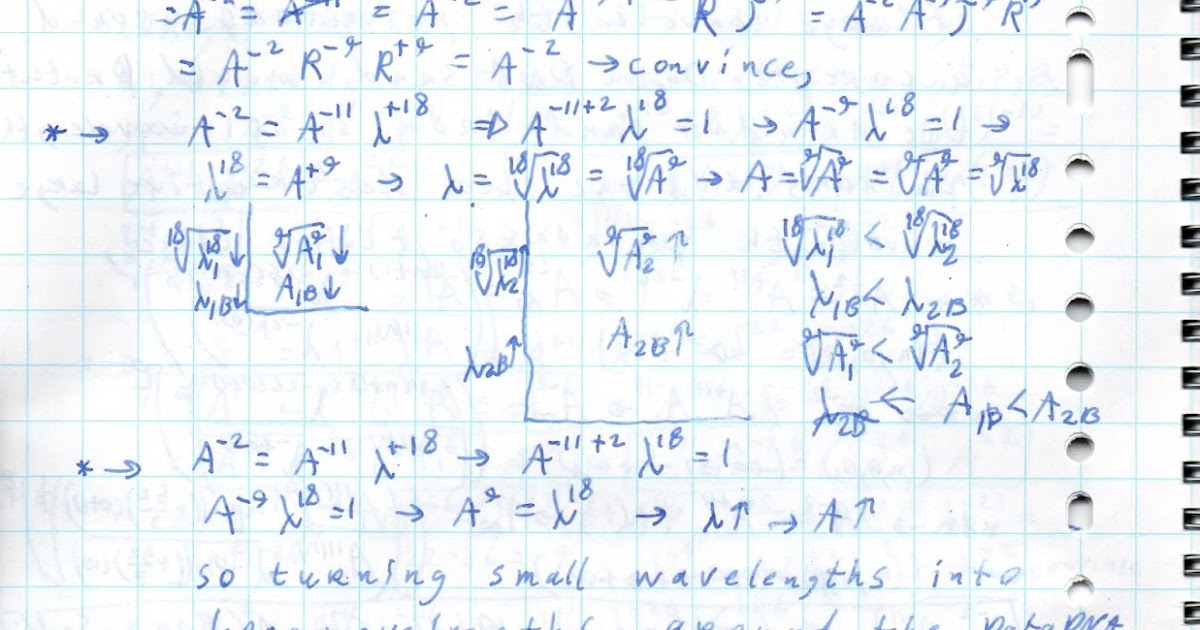 = A⁻² R⁻⁹ R⁺⁹ = A⁻² → convince,
* → A⁻² = A⁻¹¹ λ⁺¹⁸ ⇒ A⁻¹¹⁺² λ¹⁸ = 1 → A⁻⁹ λ¹⁸ = 1 →
λ¹⁸ = A⁺⁹ → λ = ¹⁸√λ¹⁸ = ¹⁸√A⁹ → A = ⁹√A⁹ = ⁹√A⁹ = ⁹√λ¹⁸
¹⁸√λ₁¹⁸ ↓ ⁹√A₁⁹ ↓ ¹⁸√λ₂¹⁸ ⁹√A₂⁹ ↑ ¹⁸√λ₁¹⁸ < ¹⁸√λ₂¹⁸
λ₁B ↓ A₁B ↓ λ₁B < λ₂B
λ₂B ↑ A₂B ↑ ⁹√A₁⁹ < ⁹√A₂⁹
← A₁B < A₂B
* → A⁻² = A⁻¹¹ λ⁺¹⁸ → A⁻¹¹⁺² λ¹⁸ = 1
A⁻⁹ λ¹⁸ = 1 → A⁹ = λ¹⁸ → λ↑ → A↑
so turning small wavelengths into